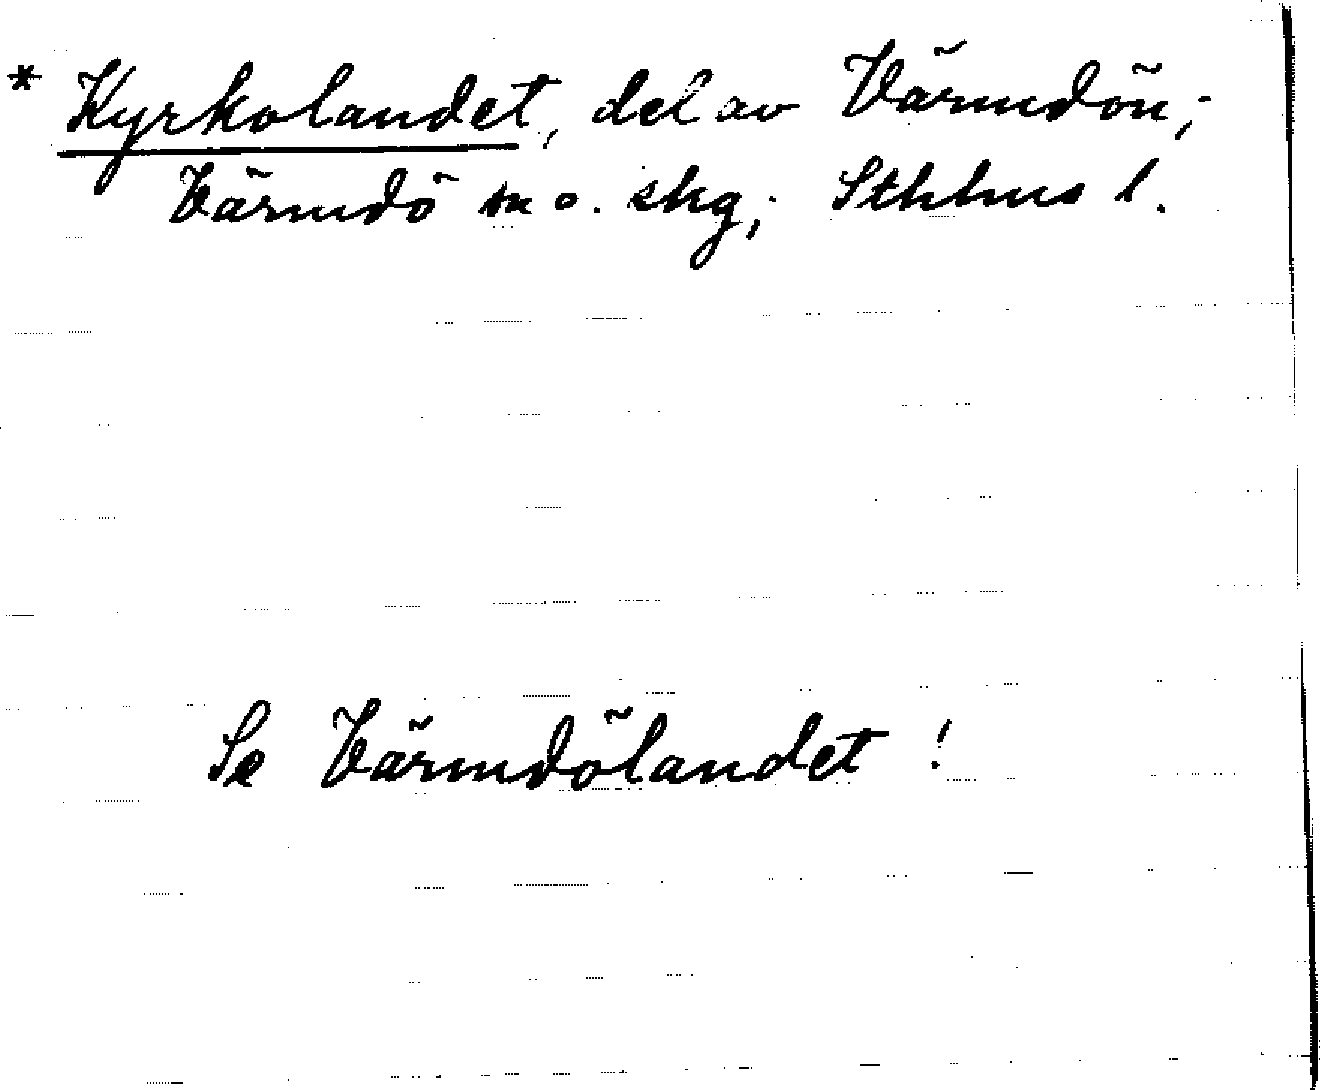 * Kyrkolandet, del av Värmdön;
Värmdö sn o. skg; Sthlms l.
Se Värmdölandet !